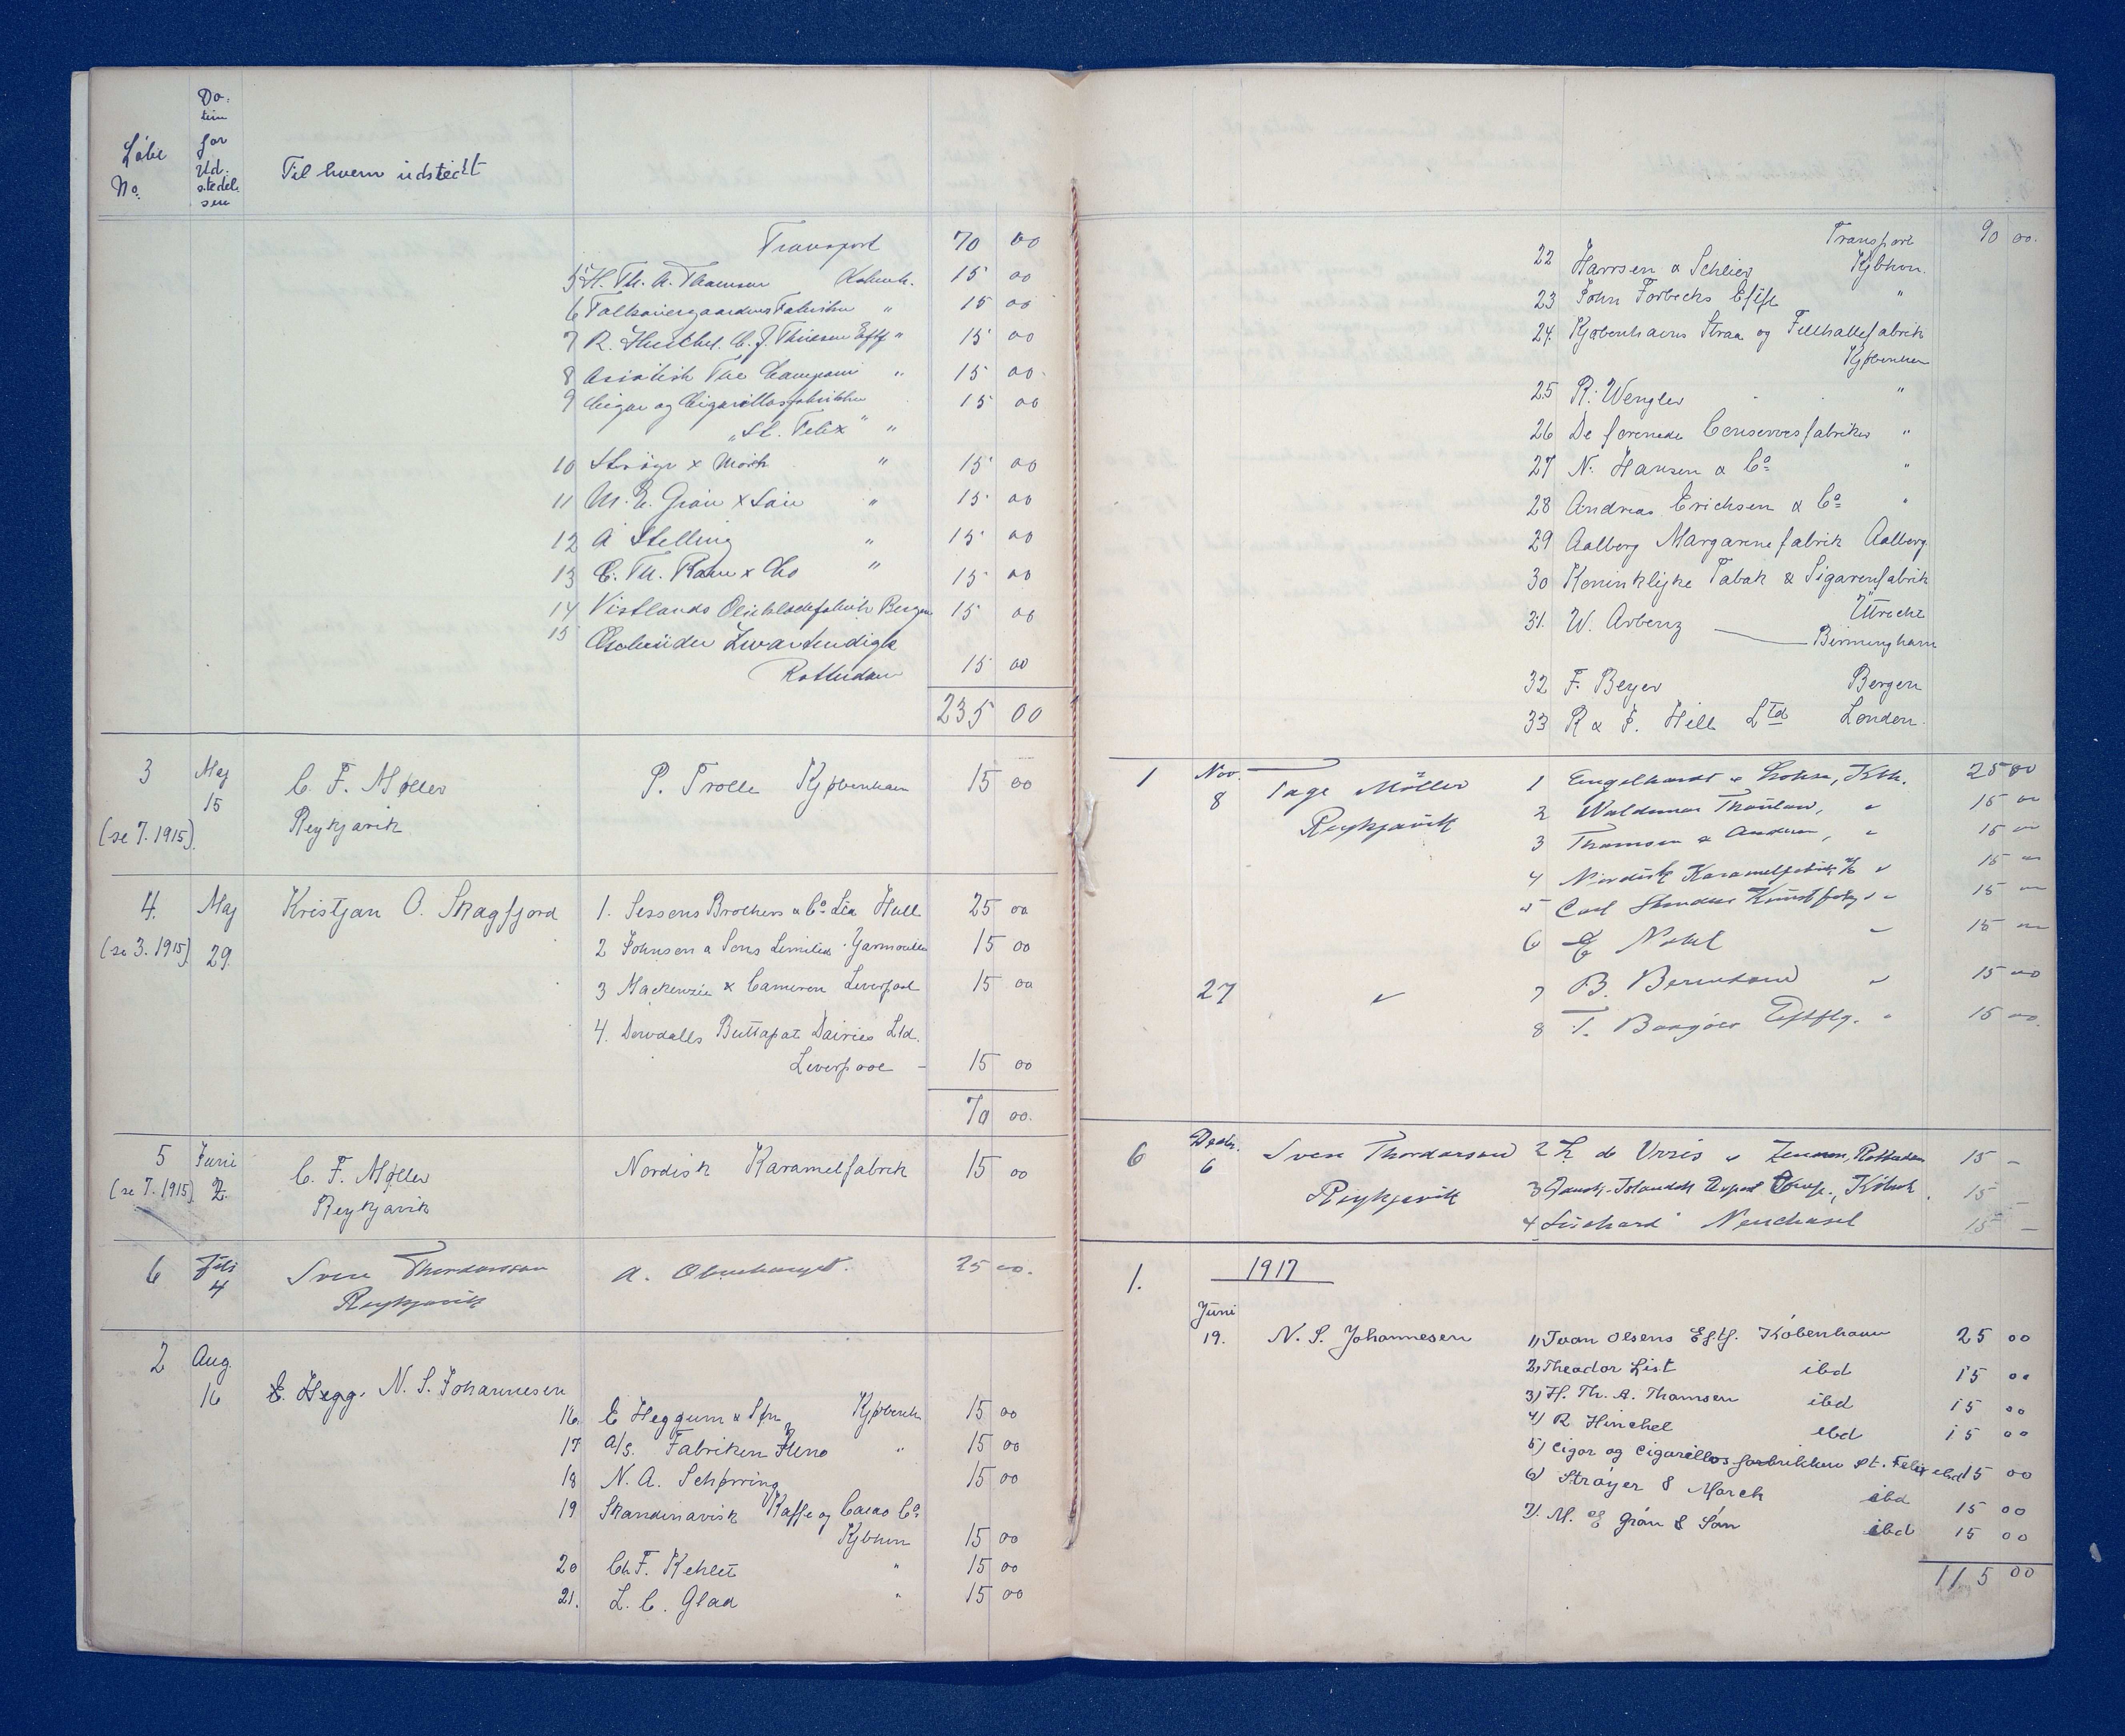 Løbe
No.
Da-
tum
for
Ud-
stedel-
sen
Til hvem udstedt
Transport 70 00
5 H. Th. A. Thomsen Københ. 15 00
6 " 15 00
7 R. Hirschel. C. J. Thuesen Eftf " 15 00
8 Asiatisk The Compani " 15 00
9 Cigar og Cigarillosfabrikken 15 00
"St. Felix" "
10 Strøyer & Mörch " 15 00
11 M. E. Grön & Sön " 15 00
12 A Stelling " 15 00
13 C. Th. Rom & Co " 15 00
14 Vestlands Bergen 15 00
15 Gebrüder
Rotterdam 15 00
235 00
3 Maj C. F. Møller P. Trolle Kjøbenhavn 15 00
15
(se 7. 1915) Reykjavik
4. Maj Kristjan O. Skagfjord 1. Sissons Brothers & Co Ltd Hull 25 00
(se 3. 1915) 29. 2 Johnsen & Sons Limited Yarmouth 15 00
3 Mackenzie & Cameron Liverpool 15 00
4. Dowdalls Buttapat Dairies Ltd.
Liverpool - 15 00
70 00.
5 Juni C. F. Møller Nordisk Karamelfabrik 15 00
(se 7. 1915) 2. Reykjavik
6 Juli Sven Thordarson A. 25 00.
4 Reykjavik
2 Aug
16 E. Hegg. N. S. Johannesen
16. E Heggum & Søn Kjøbenh 15 00
17 A/S. Fabriken 15 00
18 N. A. Schiørring 15 00
19 Skandinavisk Kaffe og Cacao Co
Kjbhvn 15 00
20 Ch F. Kehlet " 15 00
21. L. C. Glad " 15 00
Transport 90 00.
22 Harrsen & Schlier Kjbhvn.
23 John Forbechs Eftf "
24. Kjøbenhavns Straa og Filthattefabrik
Kjøbenhvn
25 R. Wengler "
26 De forenede Conservesfabriker "
27 N. Hansen & Co "
28 Andreas Erichsen & Co "
29 Aalborg Margarinefabrik Aalborg
30 Koninklijke Tabak & Sigarenfabrik
Utrecht
31. W. Arbenz Birmingham
32 F. Beyer Bergen
33 R & J. Hill Ltd London.
1 Nov. Tage Möller 1 Engelhardt & Kbh. 25 00
8 Reykjavik 2 Waldemar Thaulow, " 15 00
3 Thomsen & Andersen, " 15 00
4 Nordisk Karamelfabrik A/S " 15 00
5 Carl " 15 00
6 E Nobel " 15 00
27 " 7 B. " 15 00
8 T. Eftflg. " 15 00.
6 Decbr. Sven Thordarson 2 H. de Vries & Rotterdam 15 -
6 Reykjavik 3 Dansk-Islandsk Export Comp., Kbhvn. 15 -
4 Suchard Neuchatel 15 -
1. 1917
Juni
19. N. S. Johannesen 1) Ivan Olsens Eftf. København 25 00
2) Theodor List ibd 15 00
3) H. Th. A. Thomsen ibd 15 00
4) R Hirschel ibd 15 00
5) Cigar og Cigarillos fabrikken St. Felix ibd 15 00
6) Strøyer & March ibd 15 00
7). M. E Grön & Sön ibd 15 00
115 00